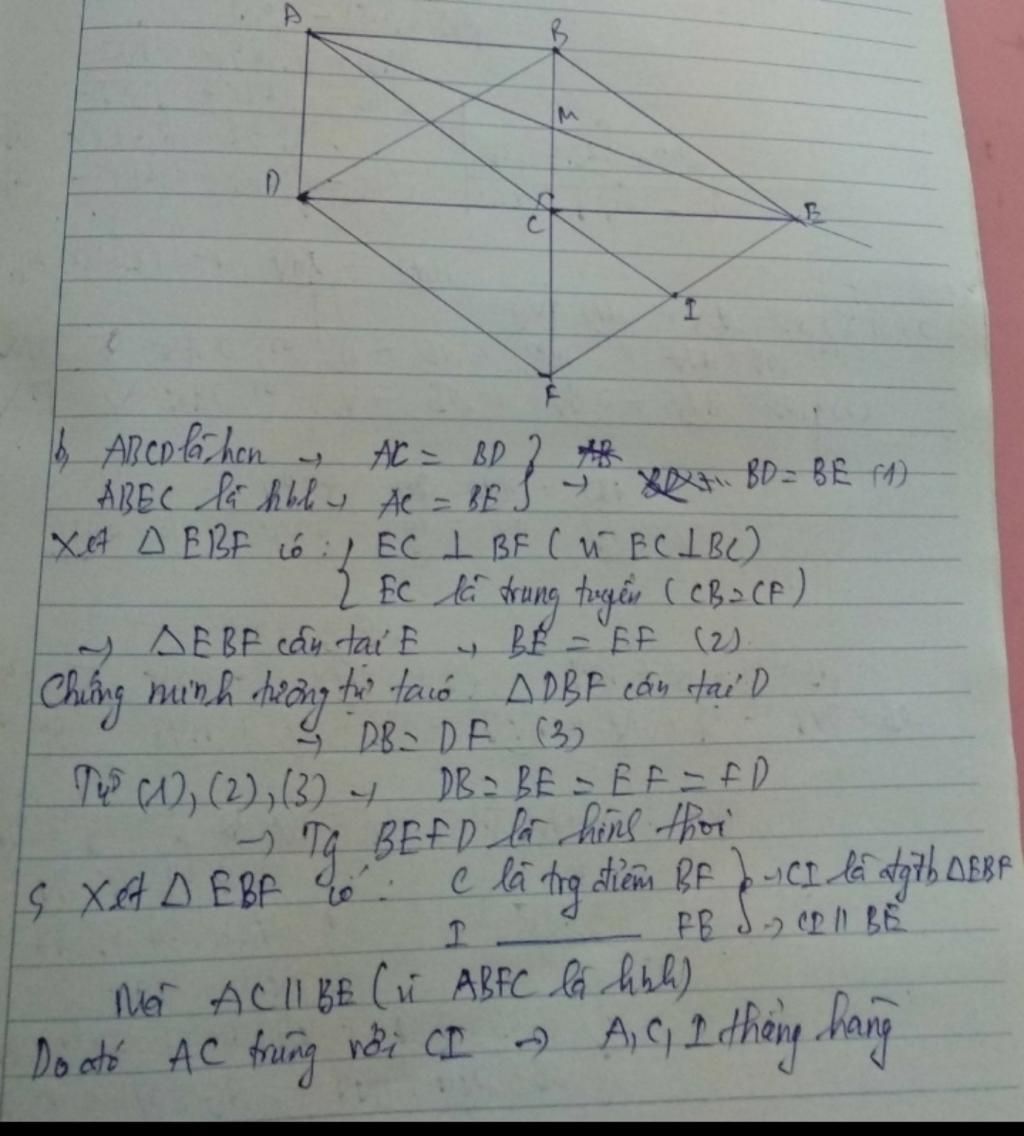 A
B
M
D
C
E
I
F
b, ABCD là hcn → AC = BD
ABEC là hbh → AC = BE → BD = BE (1)
Xét Δ EBF có : { EC ⊥ BF ( vì EC ⊥ BC)
EC là trung tuyến ( CB = CF )
→ Δ EBF cân tại E → BE = EF (2).
Chứng minh tương tự ta có Δ DBF cân tại D
→ DB = DF (3)
Từ (1), (2), (3) → DB = BE = EF = FD
→ Tg BEFD là hình thoi
c, Xét Δ EBF có : C là trg điểm BF } → CI là đgtb Δ EBF
I ———— FE } → CI // BE
Mà AC // BE ( vì ABEC là hbh)
Do đó AC trùng với CI → A, C, I thẳng hàng